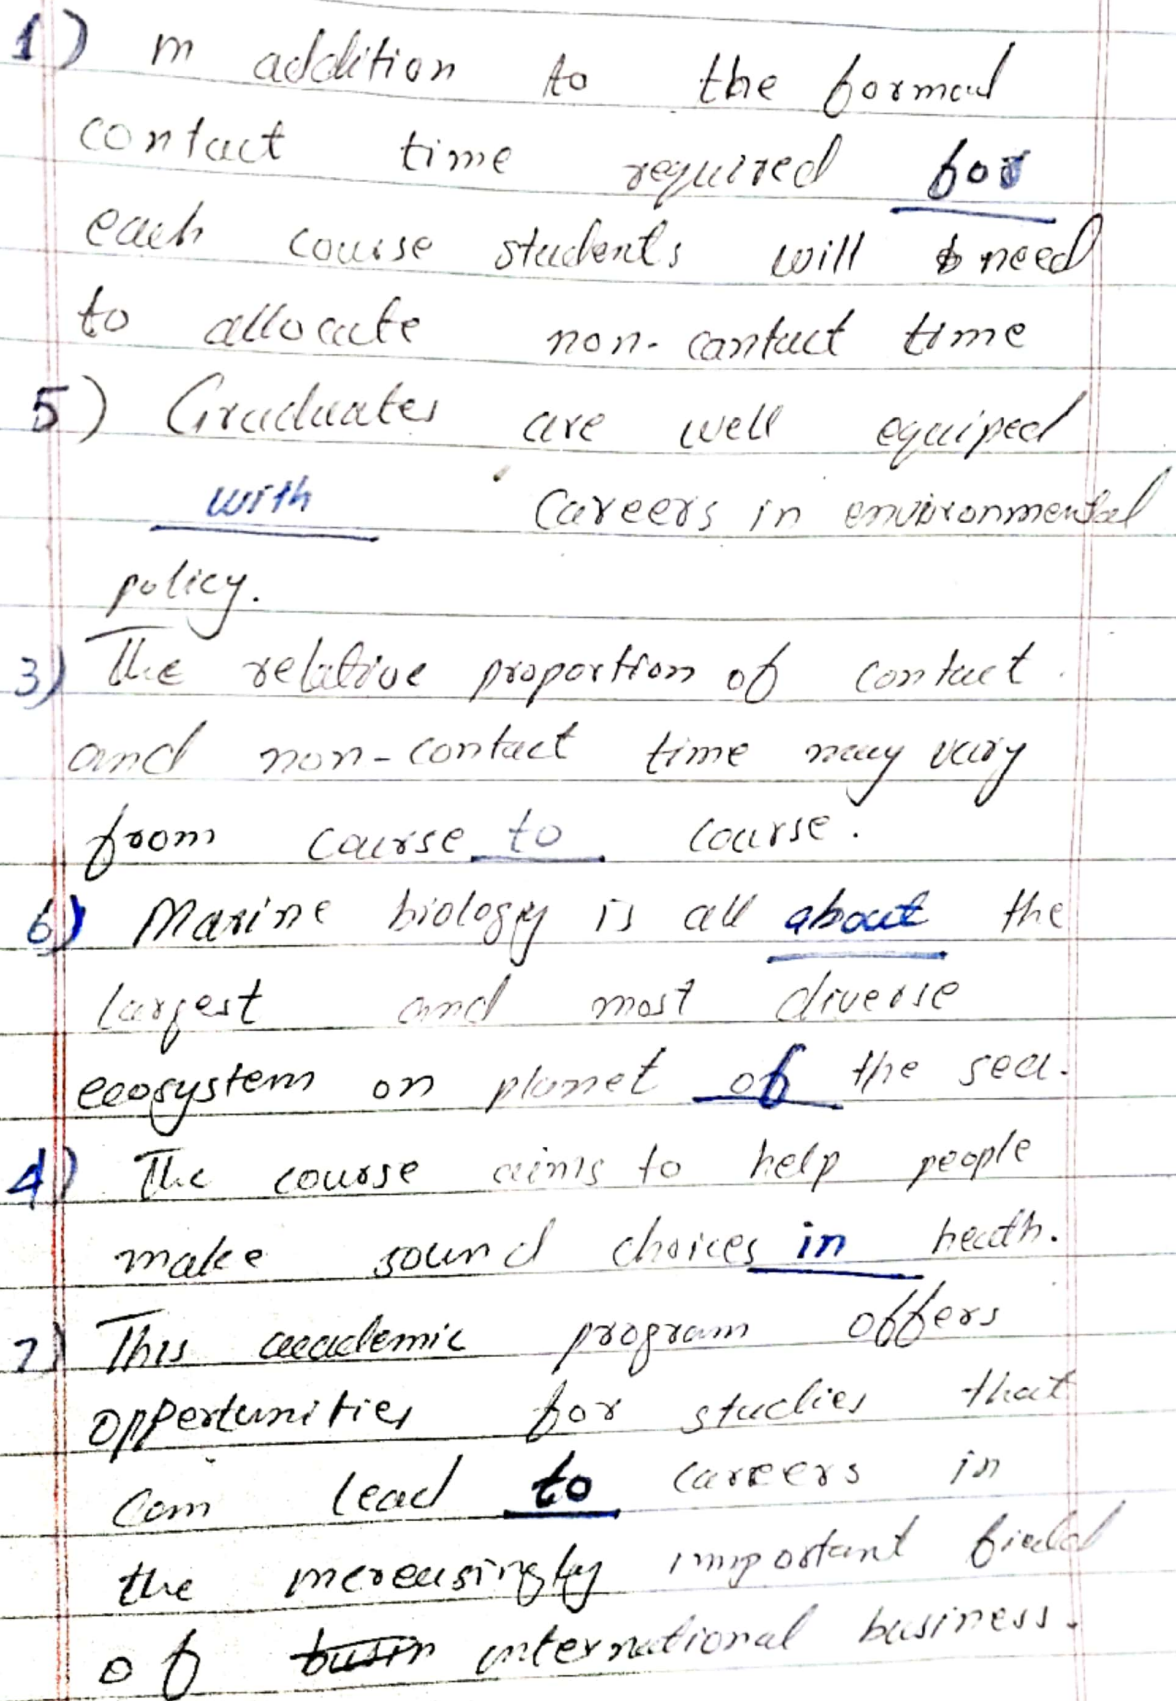 1) m addition to the formal
contact time required for
each course students will need
to allocate non-contact time
5) Graduates are well equiped
with Careers in environmental
policy.
3) The relative proportion of contact
and non-contact time may vary
from course to course.
6) Marine biology is all about the
largest and most diverse
ecosystem on planet of the sea.
4) The course aims to help people
make sound choices in heath.
7) This academic program offers
oppertunities for studies that
can lead to careers in
the increasingly important field
of busin international business.